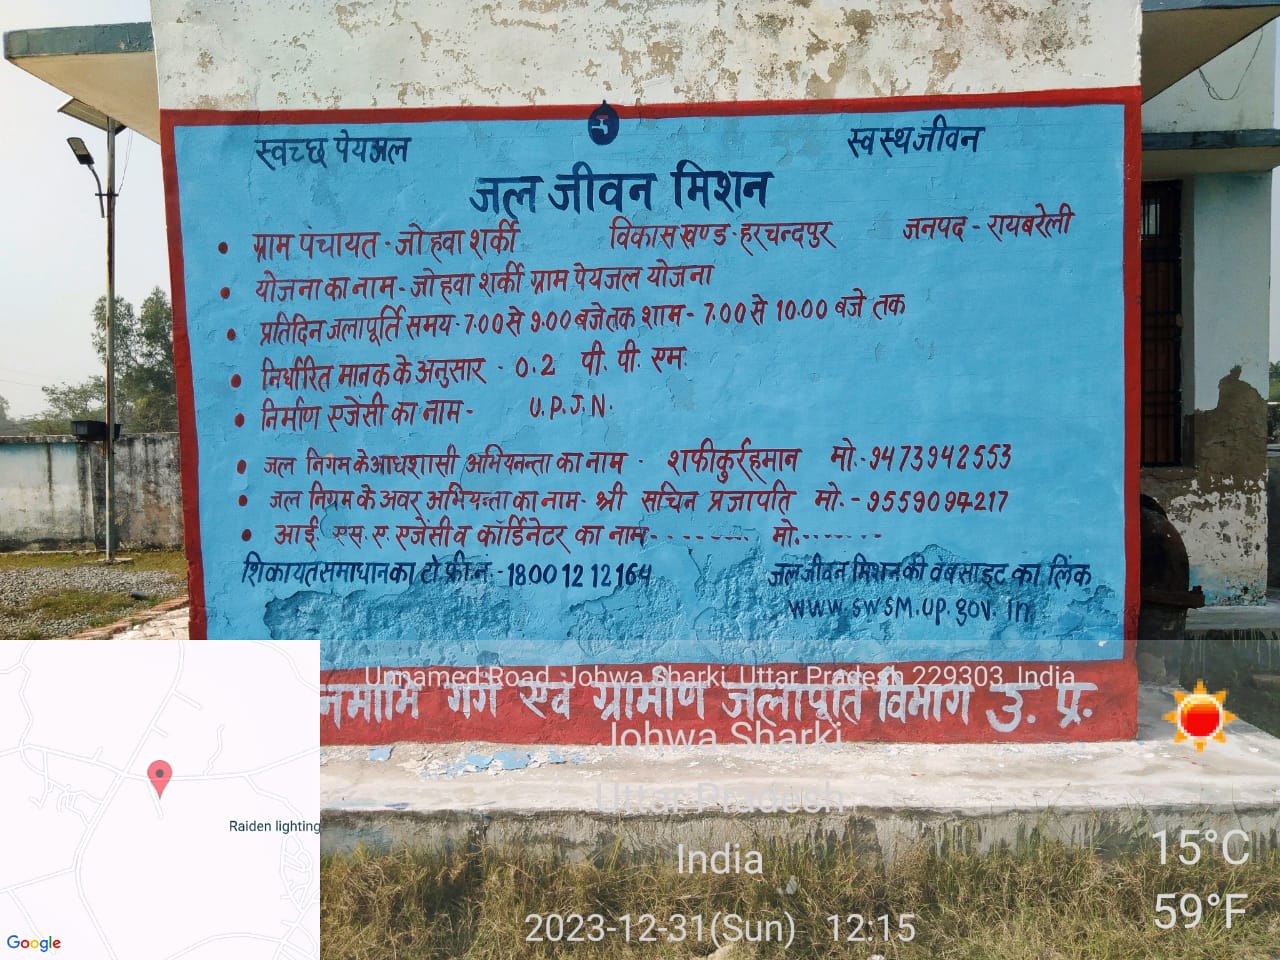 स्वच्छ पेयजल
स्वस्थ जीवन
जल जीवन मिशन
• ग्राम पंचायत - जोहवा शर्की विकास खण्ड - हरचन्दपुर जनपद - रायबरेली
• योजना का नाम - जोहवा शर्की ग्राम पेयजल योजना
• प्रतिदिन जलापूर्ति समय - 7.00 से 9.00 बजे तक शाम - 7.00 से 10.00 बजे तक
• निर्धारित मानक के अनुसार - 0.2 पी. पी. एम.
• निर्माण एजेंसी का नाम - U.P.J.N.
• जल निगम के आधशासी अभियनन्ता का नाम - शफीकुर्रहमान मो.- 9473942553
• जल निगम के अवर अभियन्ता का नाम - श्री सचिन प्रजापति मो. - 9559094217
• आई. एस. ए. एजेंसी व कॉर्डिनेटर का नाम - - - - - - - - मो. - - - - - - -
शिकायत समाधान का टो.फ्री.नं. - 1800 12 12 164
जल जीवन मिशन की वेबसाइट का लिंक
www.swsm.up.gov.in
नमामि गंगे एवं ग्रामीण जलापूर्ति विभाग उ. प्र.
Unnamed Road, Johwa Sharki, Uttar Pradesh 229303, India
Johwa Sharki
Uttar Pradesh
India
2023-12-31(Sun) 12:15
15°C
59°F
Raiden lighting
Google